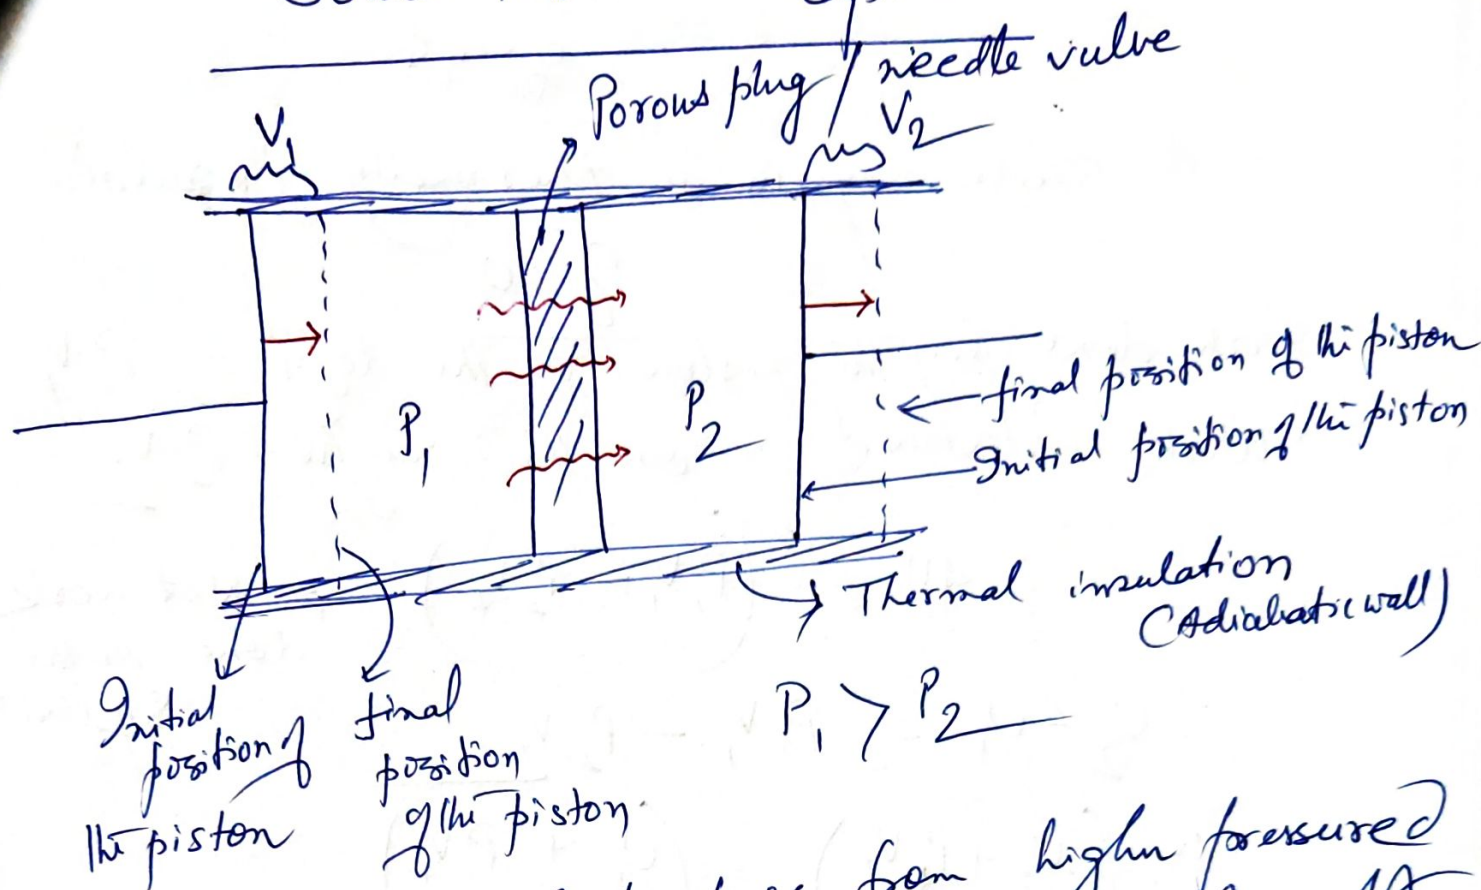 Porous plug / needle vulve
V1
V2
P1
P2
final position of the piston
Initial position of the piston
Thermal insulation
(Adiabatic wall)
P1 > P2
Initial
position of
the piston
final
position
of the piston.
from higher pressured